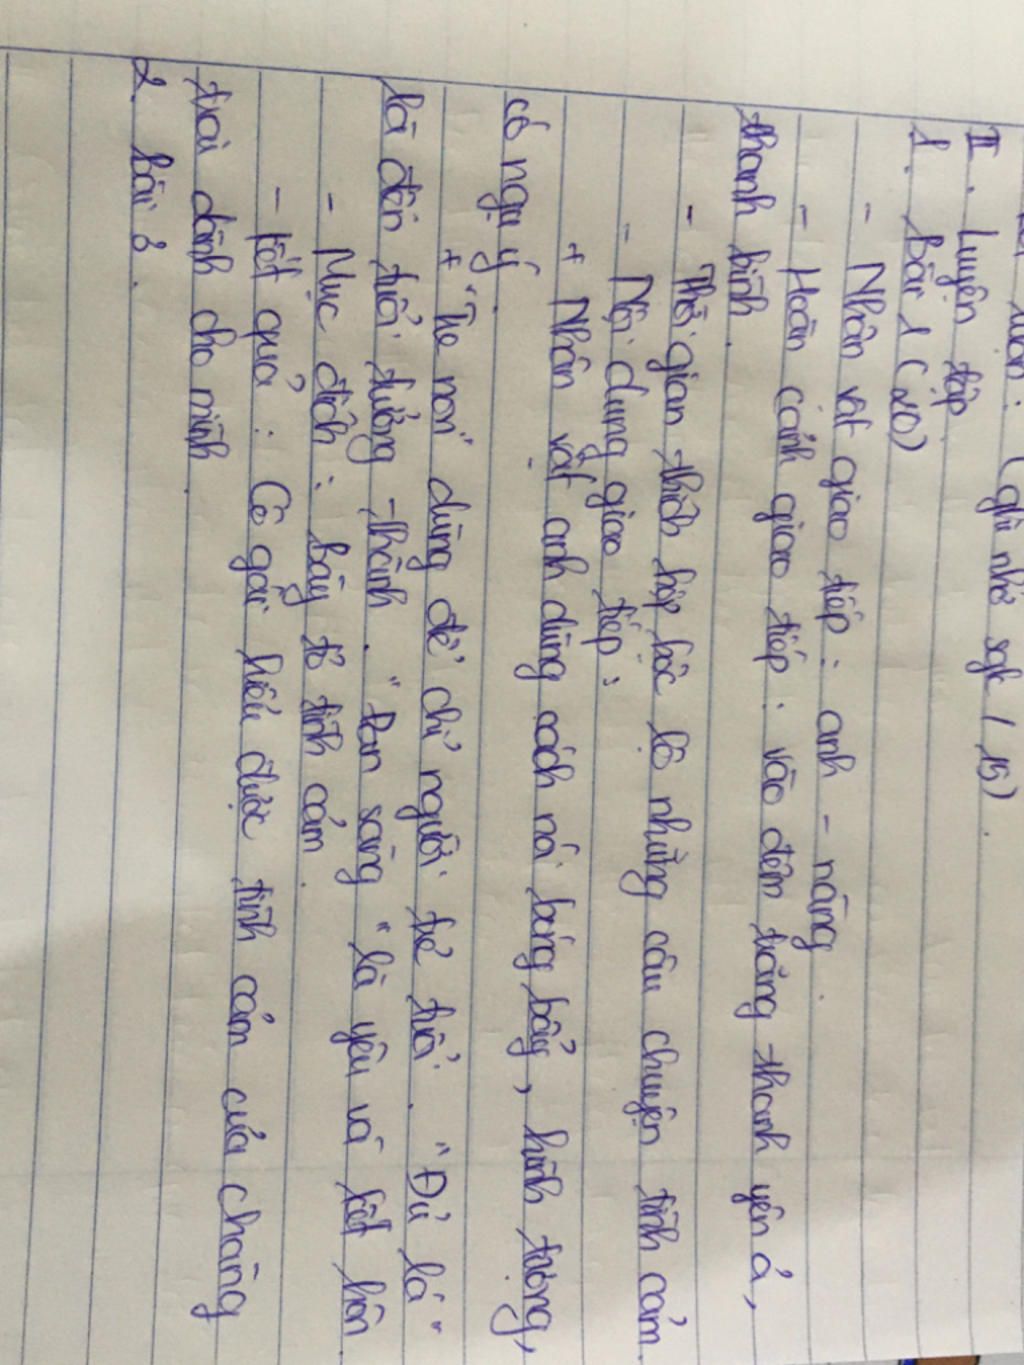 luận: (ghi nhớ sgk / 15).
II. Luyện tập
1. Bài 1 (20)
- Nhân vật giao tiếp: anh - nàng.
- Hoàn cảnh giao tiếp: vào đêm trăng thanh yên ả,
thanh bình.
- Thời gian thích hợp bộc lộ những câu chuyện tình cảm.
- Nội dung giao tiếp:
+ Nhân vật anh dùng cách nói bóng bẩy, hình tượng,
có ngụ ý.
+ "Tre non" dùng để chỉ người trẻ tuổi. "Đủ lá"
là đến tuổi trưởng thành. "Đan sàng" là yêu và kết hôn.
- Mục đích: bày tỏ tình cảm.
- Kết quả: Cô gái hiểu được tình cảm của chàng
trai dành cho mình.
2. Bài 3.